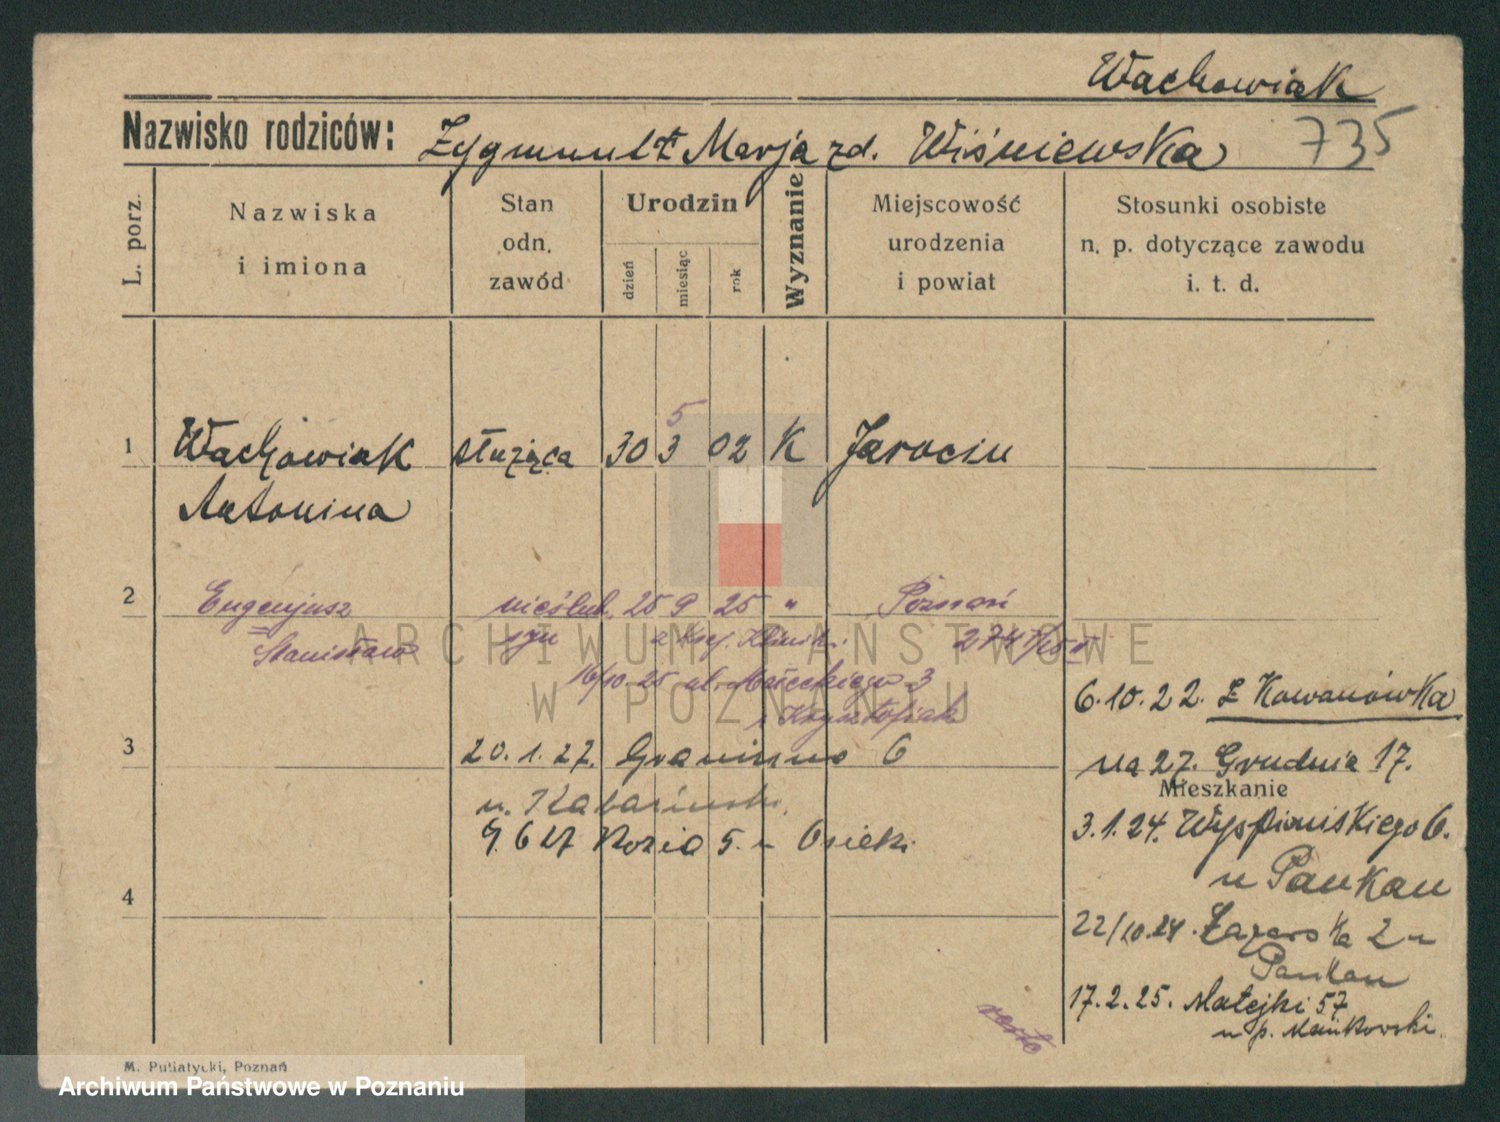 Wachowiak
Nazwisko rodziców: Zygmunt Marja zd. Wiśniewska 735
L. porz.
Nazwiska
i imiona
Stan
odn.
zawód
Urodzin
dzień
miesiąc
rok
Wyznanie
Miejscowość
urodzenia
i powiat
Stosunki osobiste
n. p. dotyczące zawodu
i. t. d.
5
1 Wachowiak służąca 30 3 02 K Jarocin
Antonina
2 Eugenjusz nieślub. 25 9 25 " Poznań
Stanisław syn
ARCHIWUM PAŃSTWOWE
W POZNANIU
16/10 25 ul. Małeckiego 3
Krysztofiak
6.10.22. z Kowanówka
3 20.1.27. 6
na 27 Grudnia 17.
Mieszkanie
9.6 27 Kozia 5.
3.1.24. Wyspiańskiego 6.
u Pankau
4
22/10.24. Łazarska 2 u
Pankau
17.2.25. Matejki 57
u p. Mańkowski
verte
M. Putiatycki, Poznań
Archiwum Państwowe w Poznaniu